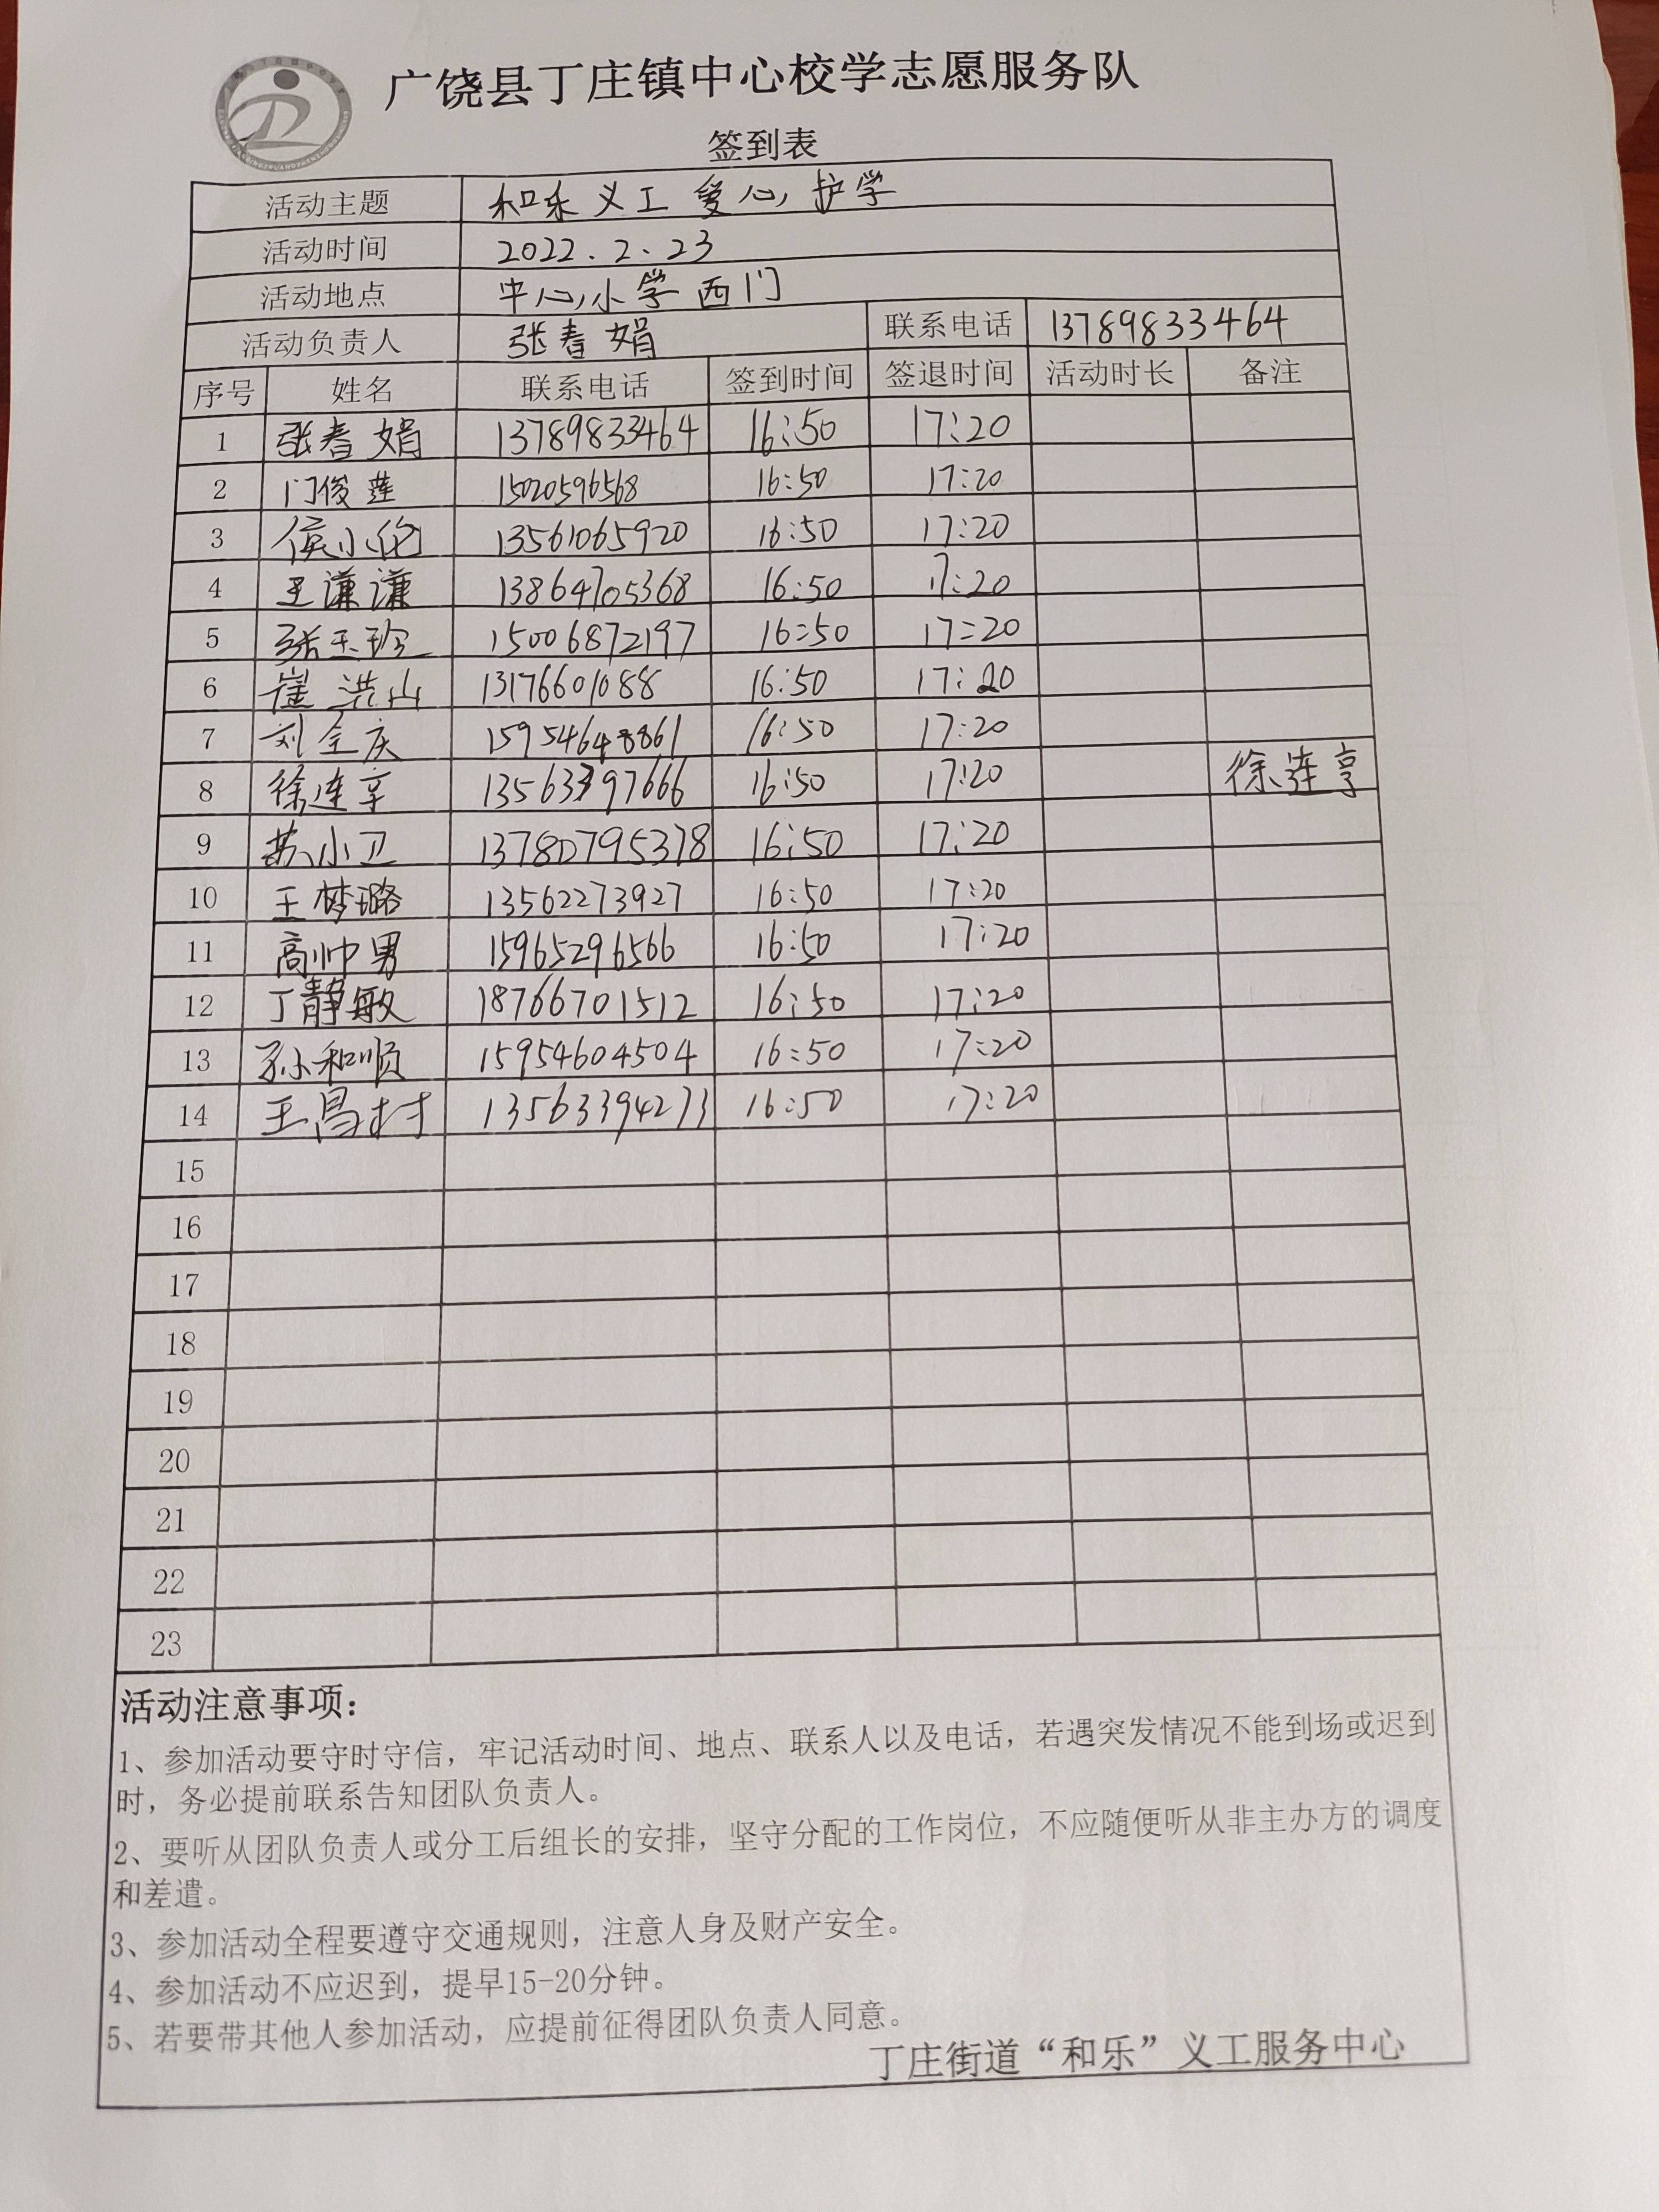 广饶县丁庄镇中心校学志愿服务队
签到表
活动主题 和乐义工 爱心护学
活动时间 2022.2.23
活动地点 中心小学西门
活动负责人 张春娟 联系电话 13789833464
序号 姓名 联系电话 签到时间 签退时间 活动时长 备注
1 张春娟 13789833464 16:50 17:20
2 门俊莲 15020596568 16:50 17:20
3 侯小伦 13561065920 16:50 17:20
4 王谦谦 13864705368 16:50 17:20
5 张玉珍 15006872197 16:50 17:20
6 崔洪山 13176601088 16:50 17:20
7 刘全庆 15954648861 16:50 17:20
8 徐连享 13563397666 16:50 17:20 徐连享
9 苏小卫 13780795378 16:50 17:20
10 王梦璐 13562273927 16:50 17:20
11 高帅男 15965296566 16:50 17:20
12 丁静敏 18766701512 16:50 17:20
13 孙和顺 15954604504 16:50 17:20
14 王昌村 13563394273 16:50 17:20
15
16
17
18
19
20
21
22
23
活动注意事项：
1、参加活动要守时守信，牢记活动时间、地点、联系人以及电话，若遇突发情况不能到场或迟到
时，务必提前联系告知团队负责人。
2、要听从团队负责人或分工后组长的安排，坚守分配的工作岗位，不应随便听从非主办方的调度
和差遣。
3、参加活动全程要遵守交通规则，注意人身及财产安全。
4、参加活动不应迟到，提早15-20分钟。
5、若要带其他人参加活动，应提前征得团队负责人同意。
丁庄街道“和乐”义工服务中心